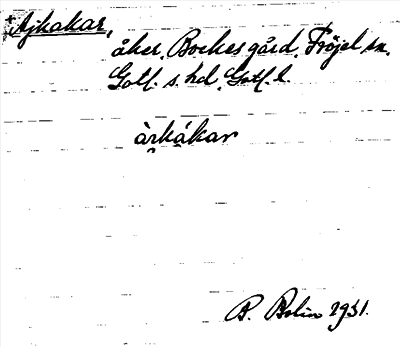 + Ajkakar,
åker, Bockes gård, Fröjel sn.
Gotl. s. hd, Gotl. l.
àrkákar
B. Bolin 1931.